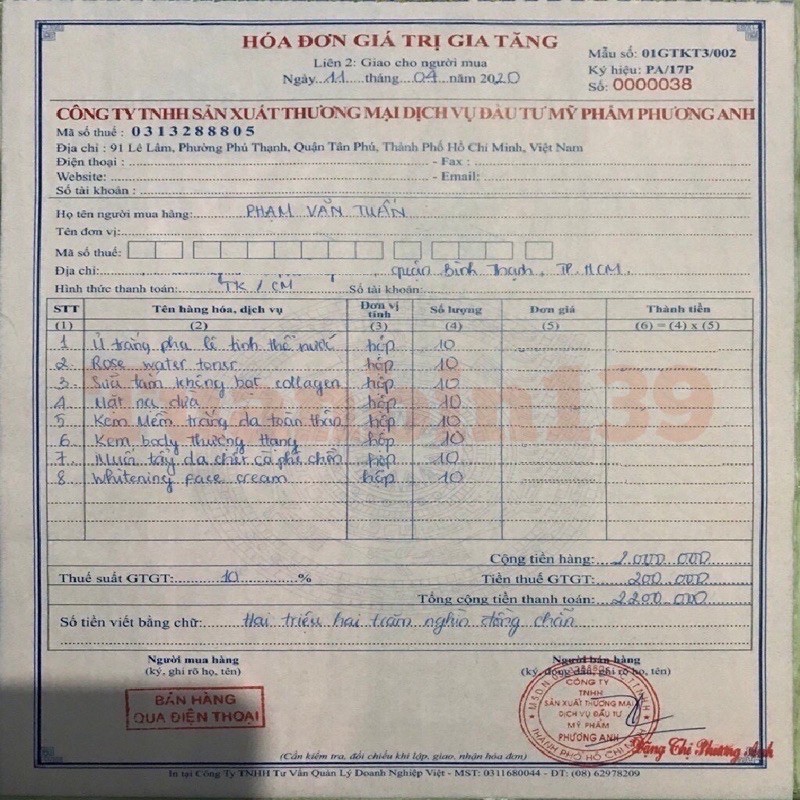 HÓA ĐƠN GIÁ TRỊ GIA TĂNG
Liên 2: Giao cho người mua
Ngày 11 tháng 04 năm 2020
Mẫu số: 01GTKT3/002
Ký hiệu: PA/17P
Số: 0000038
CÔNG TY TNHH SẢN XUẤT THƯƠNG MẠI DỊCH VỤ ĐẦU TƯ MỸ PHẨM PHƯƠNG ANH
Mã số thuế : 0313288805
Địa chỉ : 91 Lê Lâm, Phường Phú Thạnh, Quận Tân Phú, Thành Phố Hồ Chí Minh, Việt Nam
Điện thoại : - Fax :
Website: - Email:
Số tài khoản :
Họ tên người mua hàng: PHẠM VĂN TUẤN
Tên đơn vị:
Mã số thuế:
Địa chỉ: quận Bình Thạnh, TP. HCM.
Hình thức thanh toán: TK / CM Số tài khoản:
STT Tên hàng hóa, dịch vụ Đơn vị tính Số lượng Đơn giá Thành tiền
(1) (2) (3) (4) (5) (6) = (4) x (5)
1 Ủ trắng pha lê tinh thể nước hộp 10
2 Rose water toner hộp 10
3 Sữa tắm không bọt collagen hộp 10
4 Mặt nạ dừa hộp 10
5 Kem Mềm trắng da toàn thân hộp 10
6 Kem body thượng hạng hộp 10
7 Muối tẩy da chết cà phê hộp 10
8 Whitening face cream hộp 10
Cộng tiền hàng: 2.000.000
Thuế suất GTGT: 10 % Tiền thuế GTGT: 200.000
Tổng cộng tiền thanh toán: 2.200.000
Số tiền viết bằng chữ: Hai triệu hai trăm nghìn đồng chẵn
Người mua hàng
(ký, ghi rõ họ, tên)
Người bán hàng
(ký, đóng dấu, ghi rõ họ, tên)
BÁN HÀNG
QUA ĐIỆN THOẠI
CÔNG TY
TNHH
SẢN XUẤT THƯƠNG MẠI
DỊCH VỤ ĐẦU TƯ
MỸ PHẨM
PHƯƠNG ANH
THÀNH PHỐ HỒ CHÍ MINH
Đặng Chi Phương Anh
(Cần kiểm tra, đối chiếu khi lập, giao, nhận hóa đơn)
In tại Công Ty TNHH Tư Vấn Quản Lý Doanh Nghiệp Việt - MST: 0311680044 - ĐT: (08) 62978209